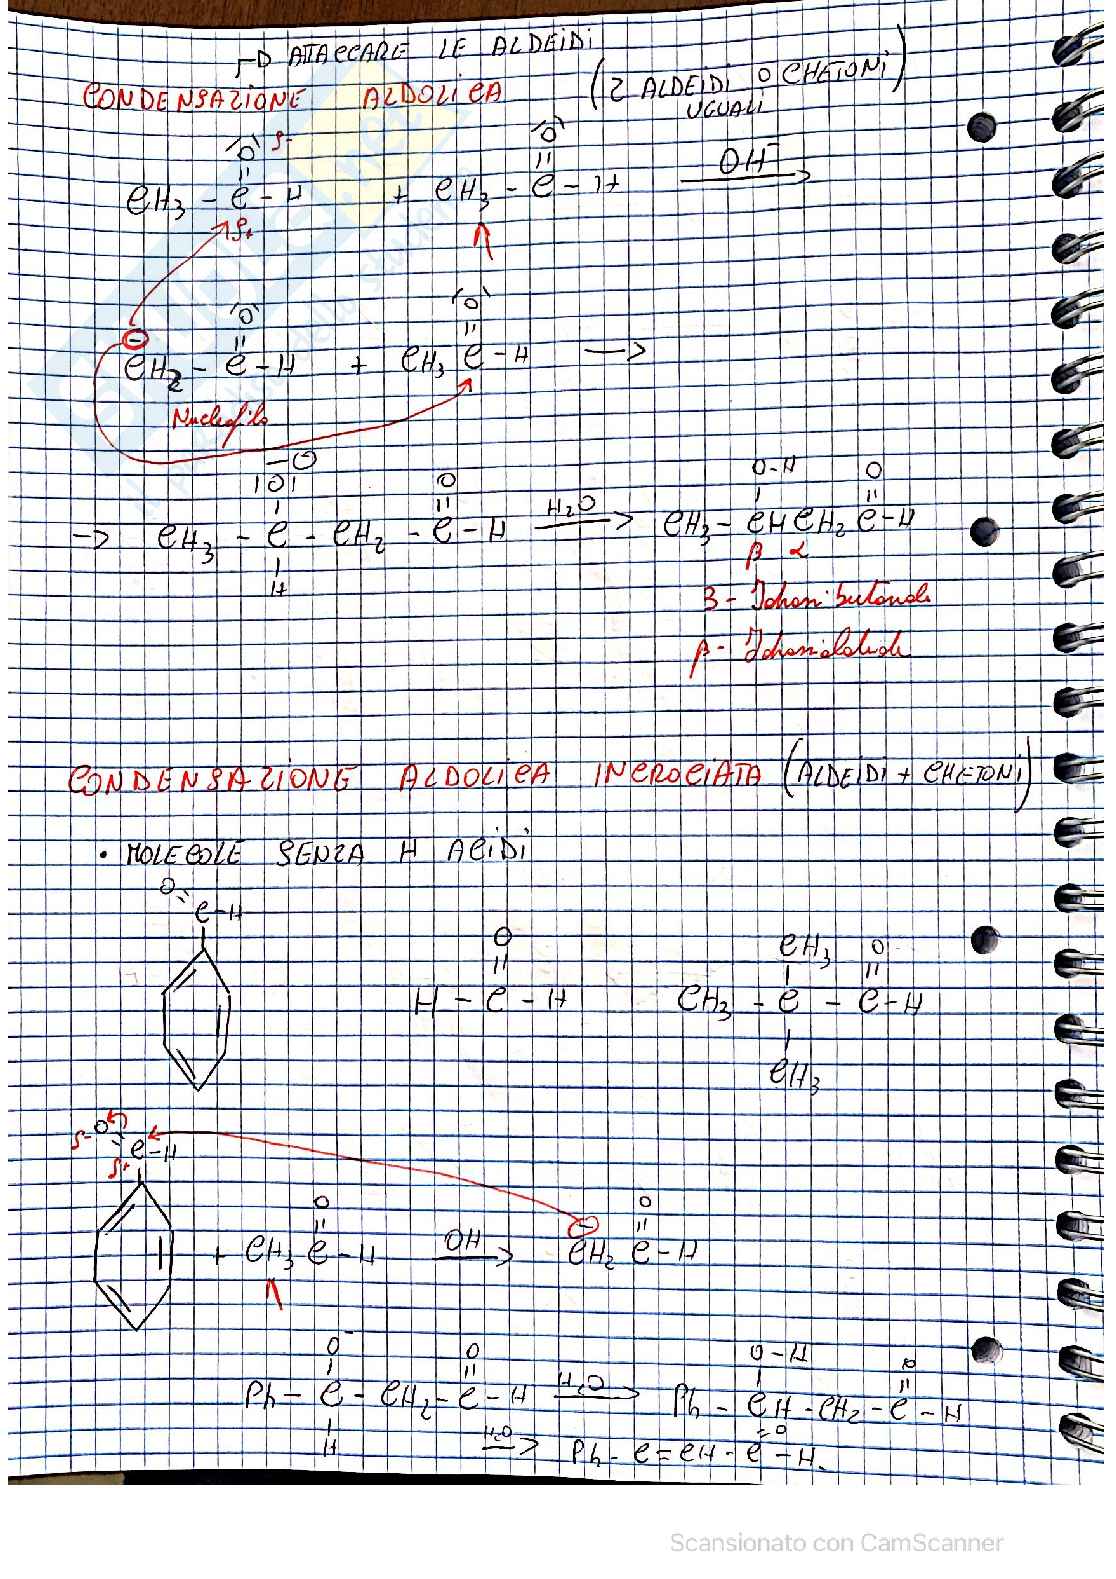 → ATTACCARE LE ALDEIDI
CONDENSAZIONE ALDOLICA (2 ALDEIDI O CHETONI UGUALI)
O δ- O
CH3 - C - H + CH3 - C - H OH⁻ →
δ+
O O
⊖ CH2 - C - H + CH3 C - H →
Nucleofilo
O⊖ O O-H O
→ CH3 - C - CH2 - C - H H2O → CH3 - CH CH2 C - H
H β α
3 - Idrossibutanale
β - Idrossialdeide
CONDENSAZIONE ALDOLICA INCROCIATA (ALDEIDI + CHETONI)
• MOLECOLE SENZA H ACIDI
O
C - H
O CH3 O
H - C - H CH3 - C - C - H
CH3
δ- O
C - H
δ+
O ⊖ O
+ CH3 C - H OH → CH2 C - H
O⁻ O O-H O
Ph - C - CH2 - C - H H2O → Ph - CH - CH2 - C - H
H H2O → Ph - C = CH - C = O - H.
Scansionato con CamScanner